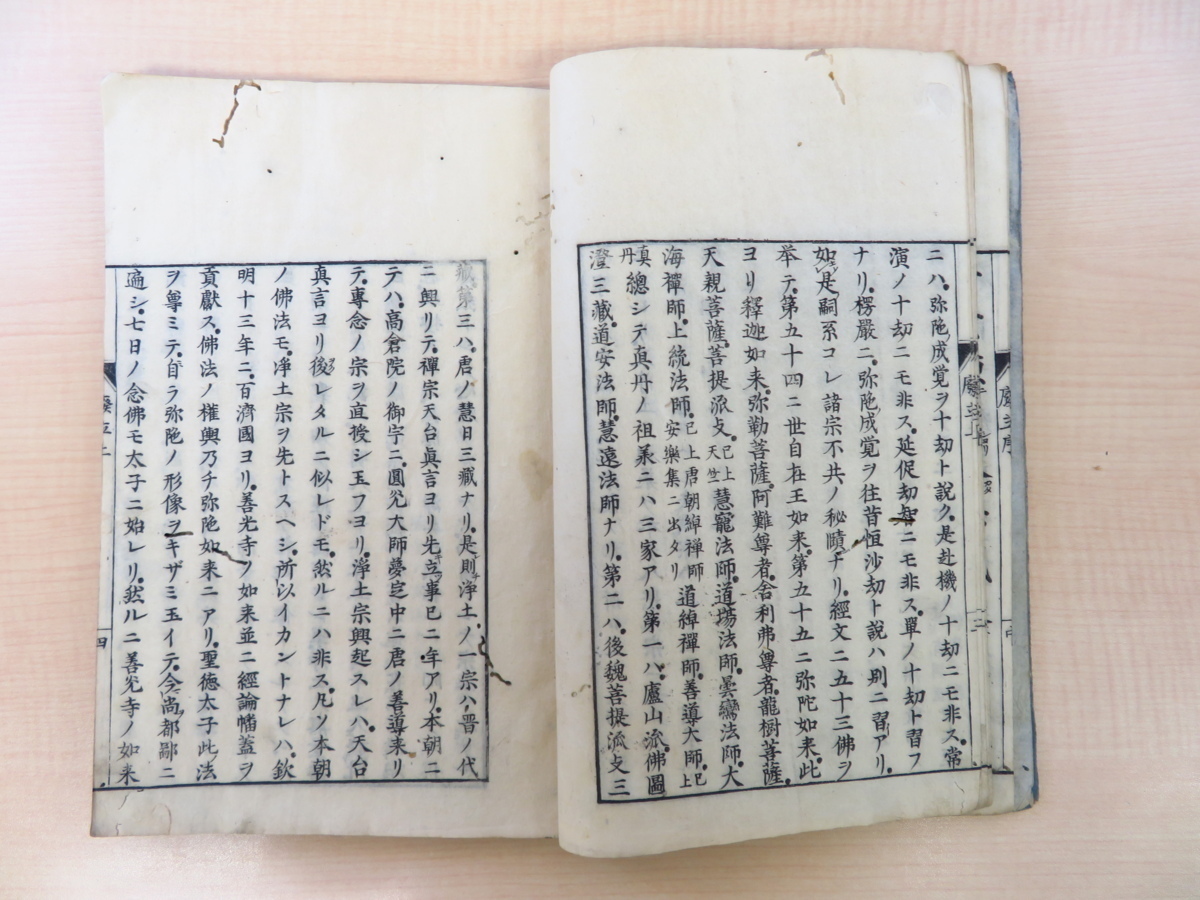 二ハ。弥陁成覚ヲ十劫ト說ク。是赴機ノ十劫ニモ非ス。常
演ノ十劫ニモ非ス。延促劫智ニモ非ス。單ノ十劫ト習フ
ナリ。楞嚴ニ。弥陁成覚ヲ往昔恒沙劫ト說ハ別ニ習アリ。
如是嗣系コレ諸宗不共ノ秘賾ナリ。經文ニ五十三佛ヲ
挙テ。第五十四ニ世自在王如来。第五十五ニ弥陀如来。此
ヨリ釋迦如来。弥勒菩薩。阿難尊者。舎利弗尊者。龍樹菩薩。
天親菩薩。菩提流支。已上天竺慧寵法師。道場法師。曇鸞法師。大
海禪師。上統法師。已上唐朝綽禅師安樂集ニ出タリ道綽禪師。善導大師。已上
真丹總シテ真丹ノ祖義ニハ三家アリ。第一ハ。廬山流。佛圖
澄三藏。道安法師。慧遠法師ナリ。第二ハ。後魏菩提流支三
藏。第三ハ。唐ノ慧日三藏ナリ。是則浄土ノ一宗ハ。晋ノ代
ニ興リテ。禪宗天台真言ヨリ先立事已ニ年アリ。本朝ニ
テハ。高倉院ノ御宇ニ。圓光大師夢定中ニ唐ノ善導来リ
テ。專念ノ宗ヲ直授シ玉フヨリ。浄土宗興起スレハ。天台
真言ヨリ後レタルニ似レドモ。然ルニハ非ス。凡ソ本朝
ノ佛法モ。浄土宗ヲ先トスヘシ。所以イカントナレハ。欽
明十三年ニ。百濟國ヨリ。善光寺ノ如来並ニ經論幡蓋ヲ
貢獻ス。佛法ノ權輿乃チ弥陁如来ニアリ。聖徳太子此法
ヲ尊ミテ。自ラ弥陁ノ形像ヲキザミ玉イテ。今尚都鄙ニ
遍シ。七日ノ念佛モ太子ニ始レリ。然ルニ善光寺ノ如来
四